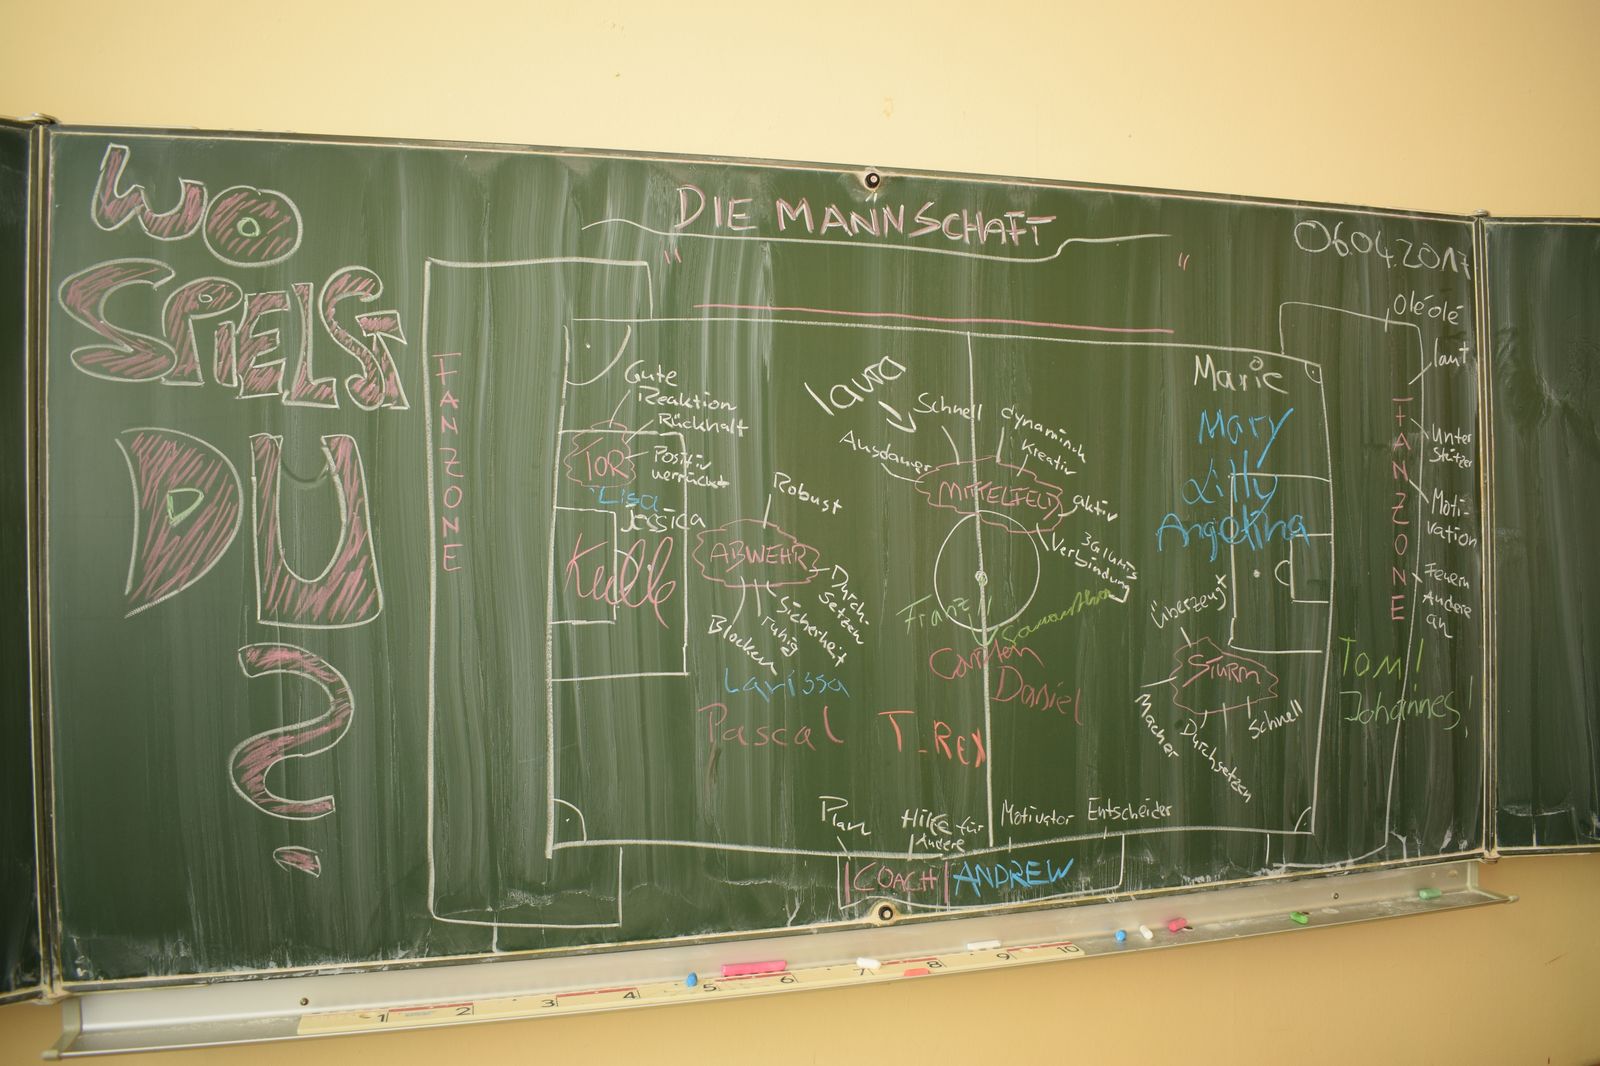 WO
SPIELST
DU
?
"DIE MANNSCHAFT"
06.04.2017
FANZONE
Gute
Reaktion
Rückhalt
TOR
Positiv
verrückt
Lisa
Jessica
Kulle
Robust
ABWEHR
Durch-
setzen
Sicherheit
ruhig
Blocken
Larissa
Pascal
T-Rex
Schnell
dynamisch
Kreativ
Ausdauer
MITTELFELD
aktiv
Verbindung
Franz
Samantha
Carsten
Daniel
Marie
Mary
Lilly
Angelina
überzeugt
STURM
Macher
Durchsetzen
Schnell
Plan
Hilfe für
Andere
Motivator
Entscheider
COACH
ANDREW
Olé olé
laut
FANZONE
Unter
Stützer
Moti-
vation
Feuern
Andere
an
Tom!
Johannes!
1 2 3 4 5 6 7 8 9 10